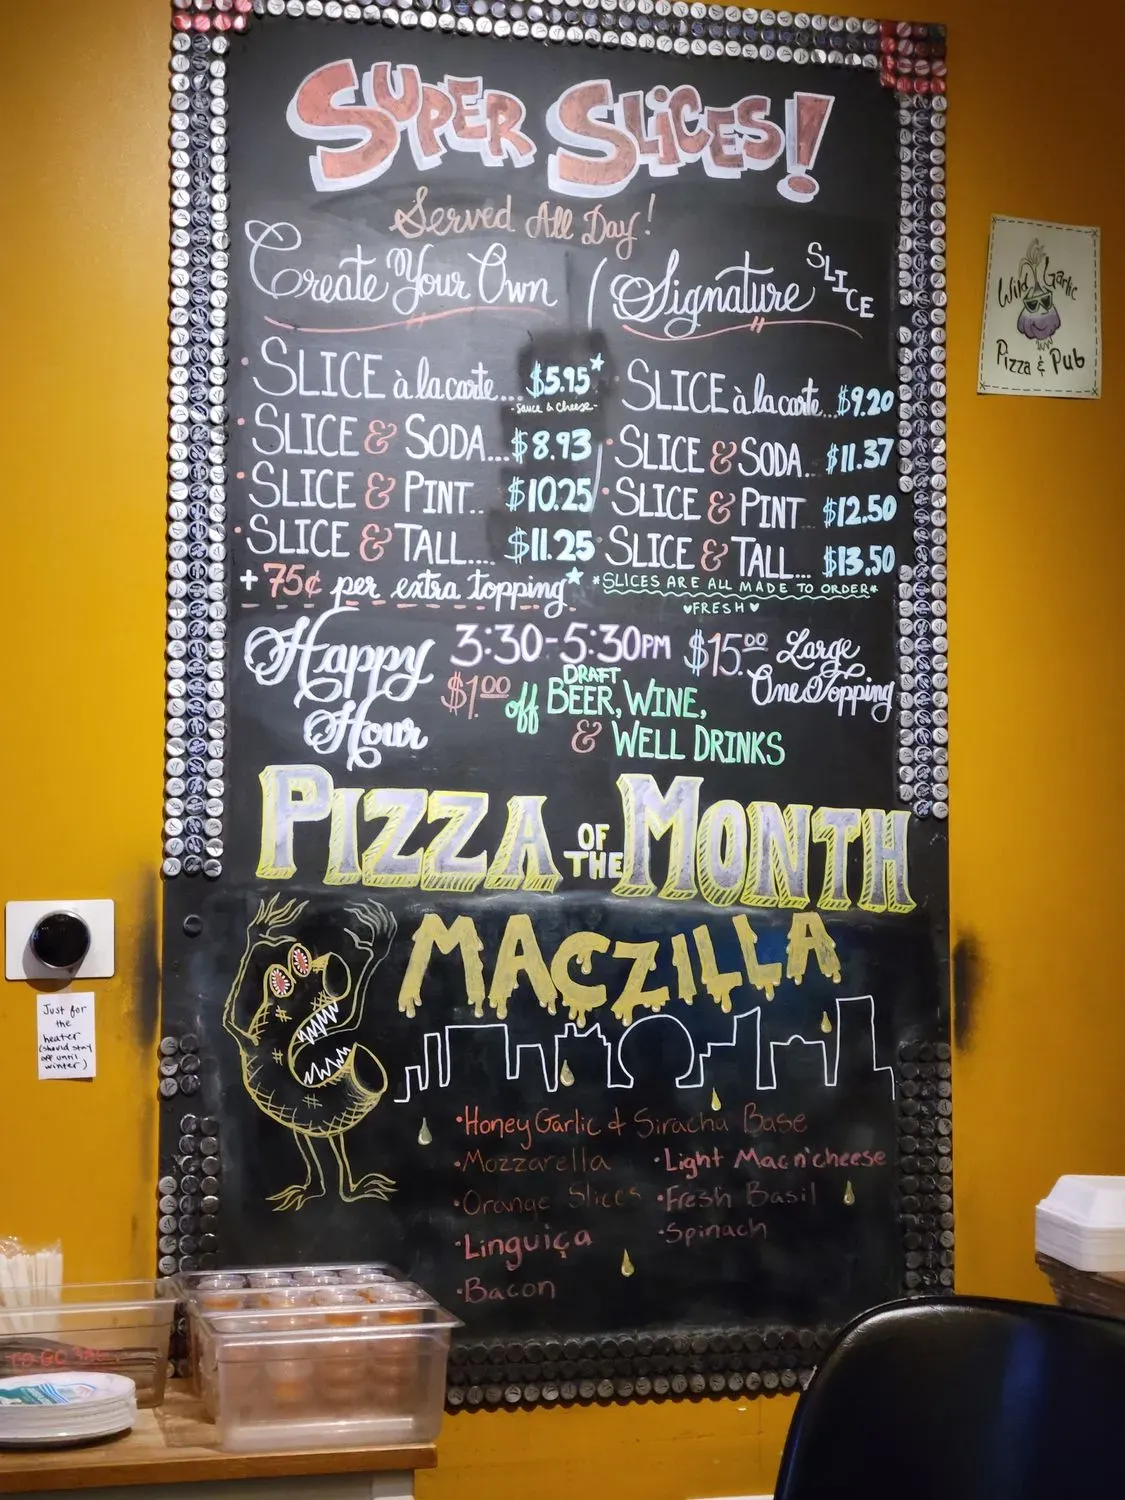 SUPER SLICES!
Served All Day!
Create Your Own
SLICE à la carte... $5.95*
- Sauce & Cheese -
SLICE & SODA... $8.93
SLICE & PINT.. $10.25
SLICE & TALL.... $11.25
+ 75¢ per extra topping*
Signature SLICE
SLICE à la carte... $9.20
SLICE & SODA.. $11.37
SLICE & PINT $12.50
SLICE & TALL... $13.50
*SLICES ARE ALL MADE TO ORDER*
♥FRESH♥
Happy Hour
3:30-5:30PM
$1.00 off DRAFT BEER, WINE,
& WELL DRINKS
$15.00 Large
One Topping
PIZZA OF THE MONTH
MACZILLA
•Honey Garlic & Siracha Base
•Mozzarella
•Orange Slices
•Linguiça
•Bacon
•Light Mac n' cheese
•Fresh Basil
•Spinach
Wild Garlic
Pizza & Pub
Just for
the
heater
(should stay
off until
winter)